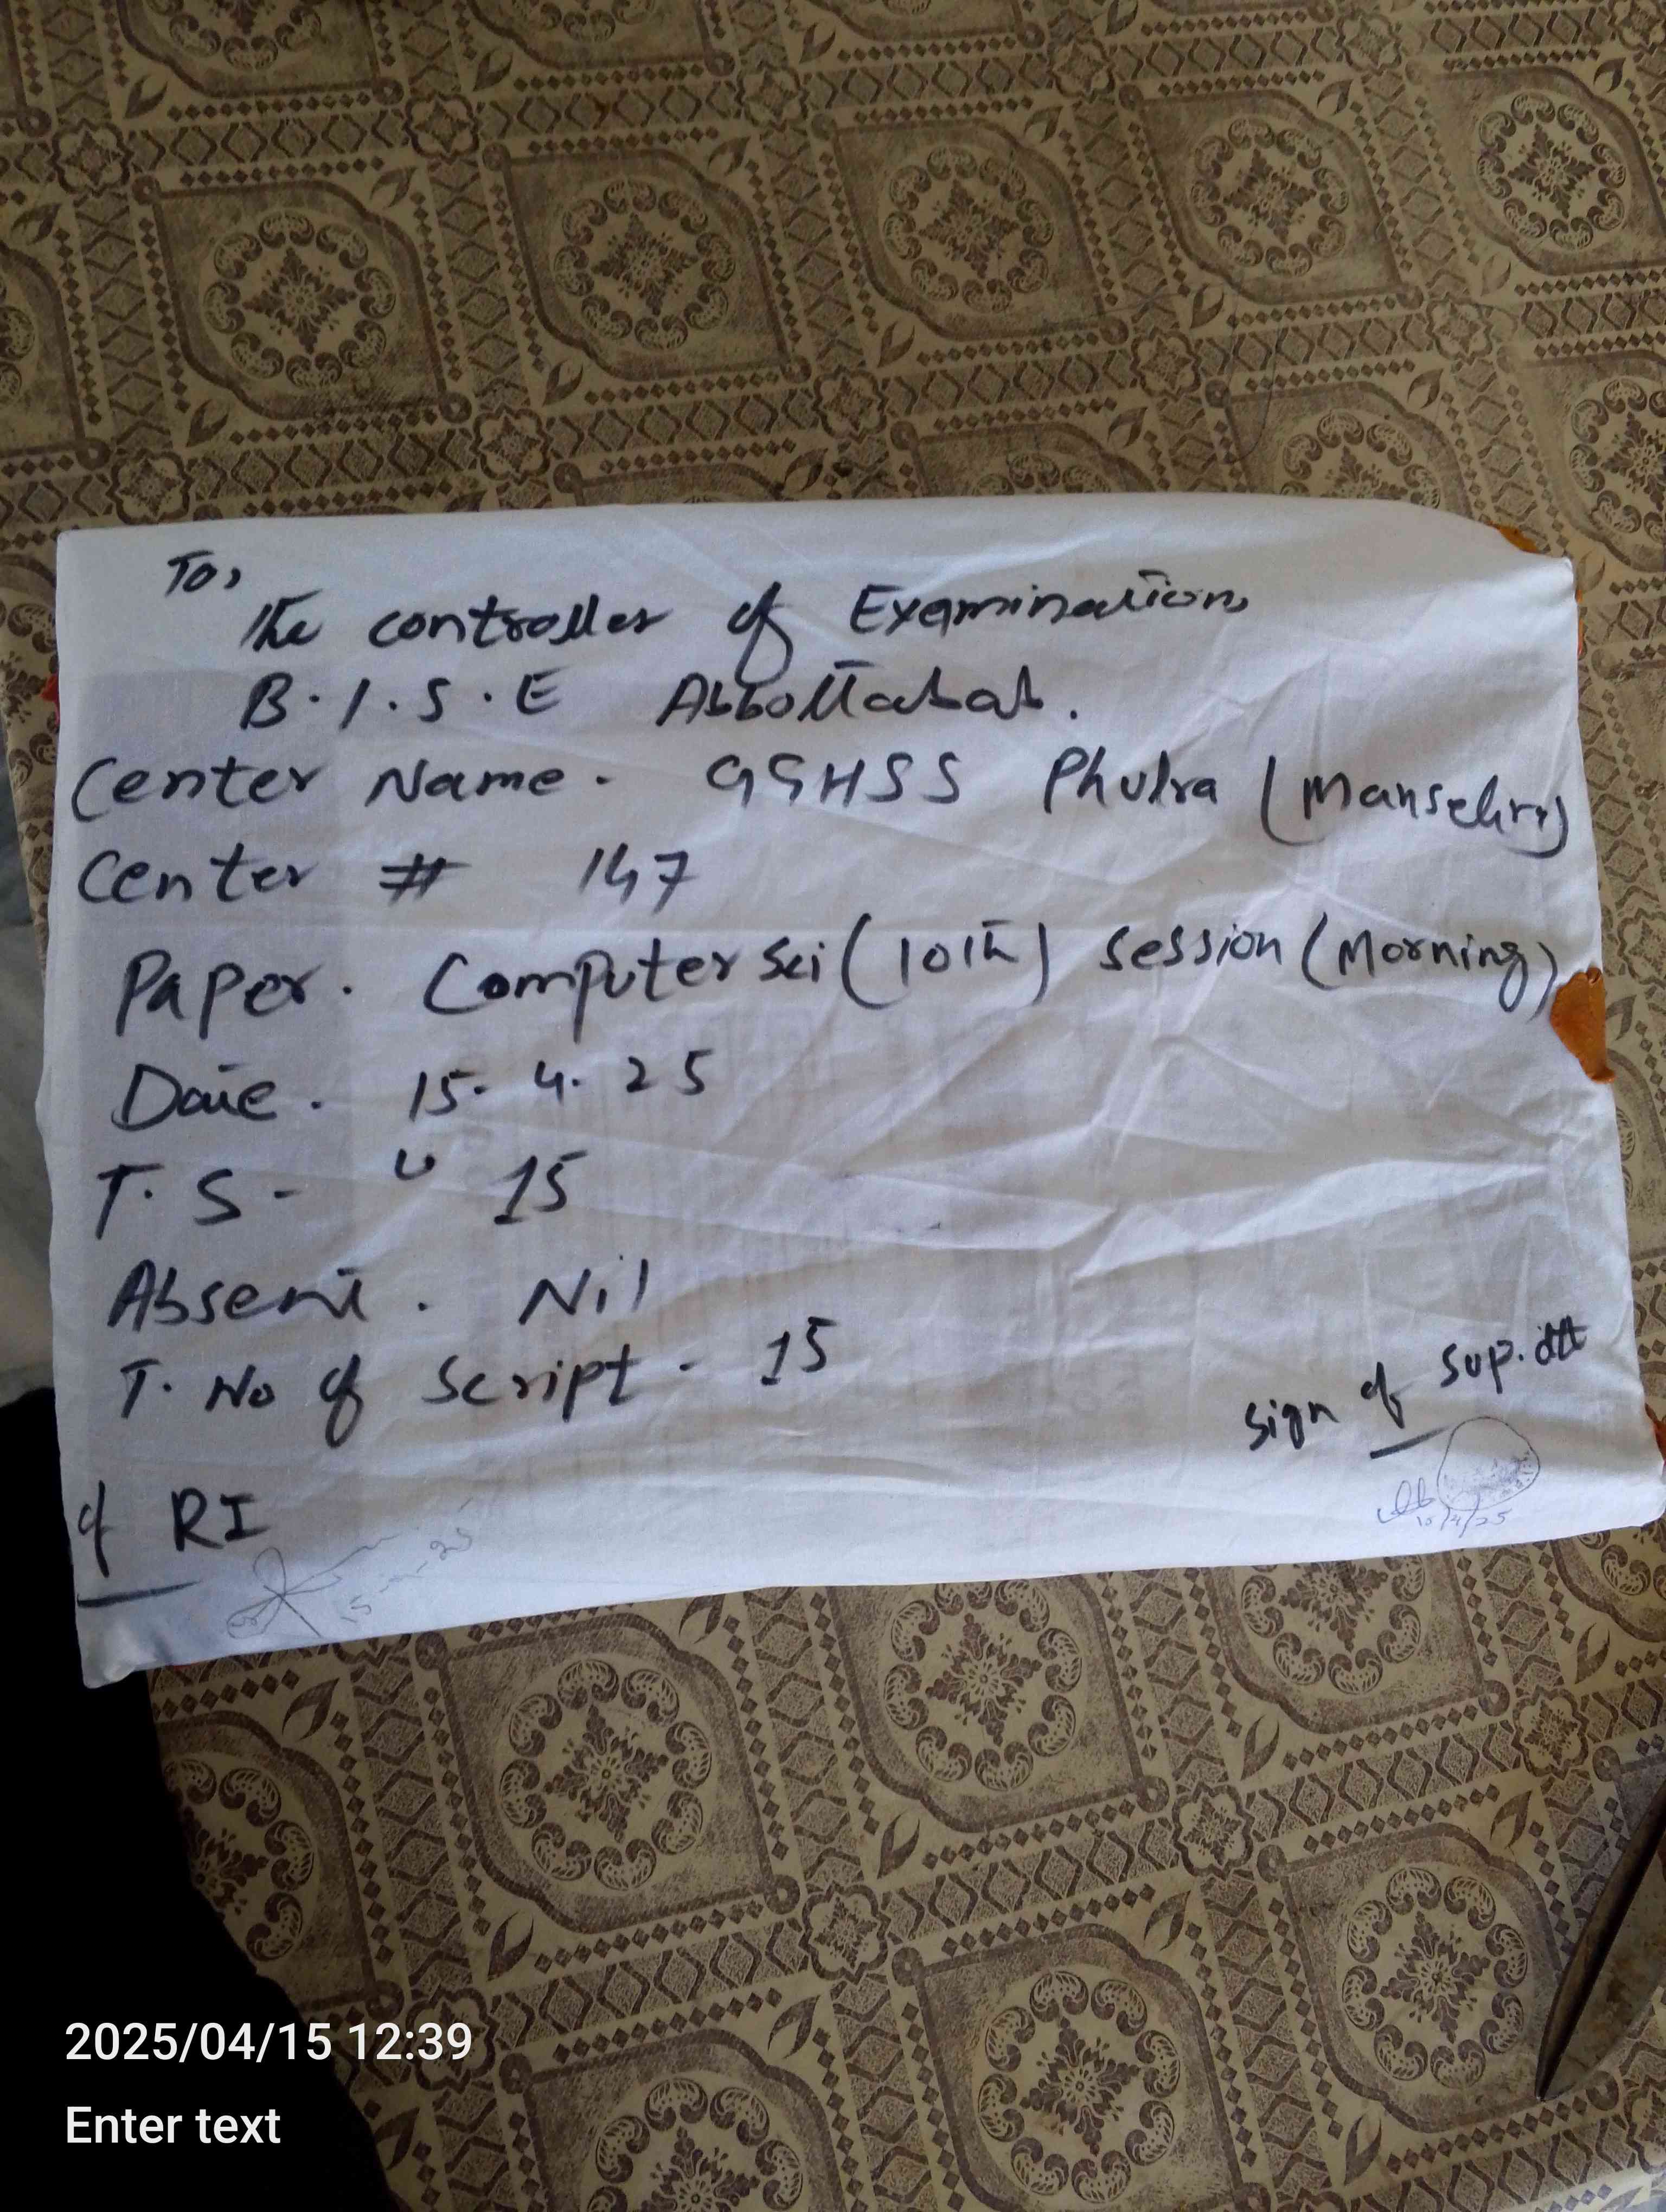 To,
The controller of Examination
B.I.S.E Abbottabad.
Center Name. GGHSS Phulra (Mansehra)
Center # 147
Paper. Computer Sci (10th) Session (Morning)
Date. 15. 4. 25
T. S - 15
Absent. Nil
T. No of Script - 15
Sign of Sup.dtt
of RI
15-4-25
15/4/25
2025/04/15 12:39
Enter text